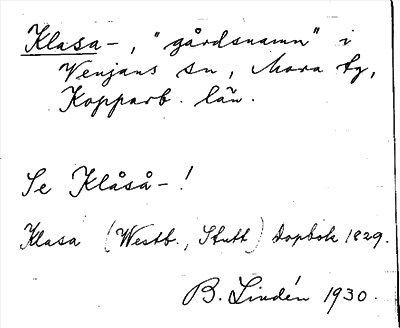 Klasa-, "gårdsnamn" i
Venjans sn, Mora tg,
Kopparb. län.
Se Klåså-!
Klasa (Westb., Stutt) Dopbok 1829.
B. Lindén 1930.